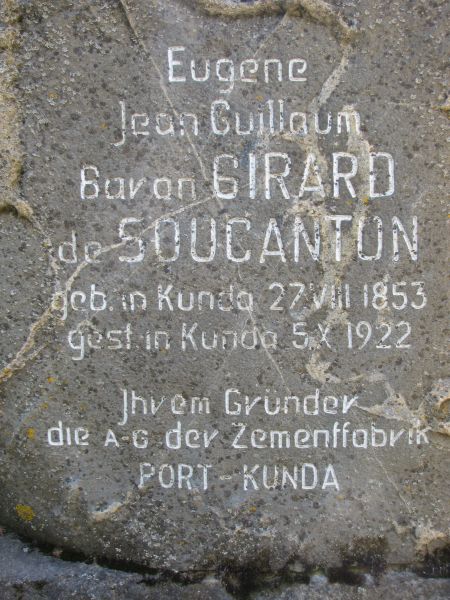 Eugene
Jean Guillaum
Baron GIRARD
de SOUCANTON
geb. in Kunda 27.VIII 1853
gest in Kunda 5.X 1922
Ihrem Gründer
die A-G der Zementfabrik
PORT-KUNDA